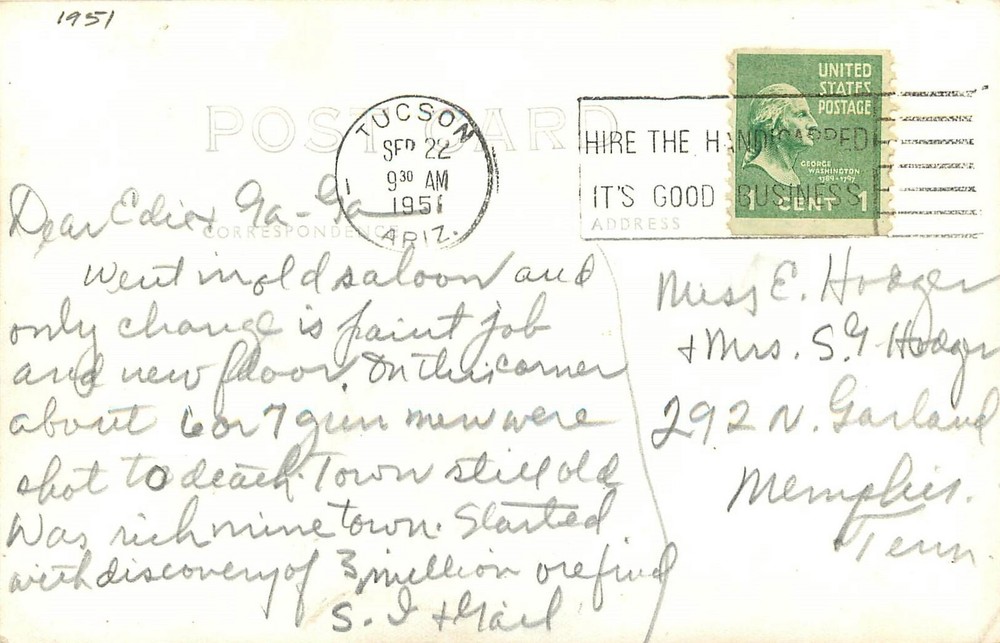 1951
POST CARD
TUCSON
SEP 22
9 30 AM
1951
ARIZ.
1
HIRE THE HANDICAPPED
IT'S GOOD BUSINESS
UNITED
STATES
POSTAGE
GEORGE
WASHINGTON
1789-1797
1 CENT 1
CORRESPONDENCE
ADDRESS
Dear Edie + Ga-Ga
Went in old saloon and
only change is paint job
and new floor. On this corner
about 6 or 7 gun men were
shot to death. Town still old
Was rich mine town. Started
with discovery of 3 million ore find
S. I + Gail
Miss E. Hodger
+ Mrs. S.Y. Hodger
292 N. Garland
Memphis.
Tenn.